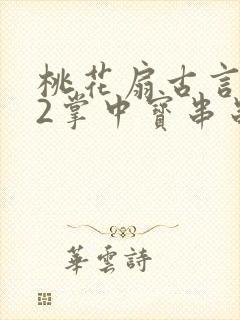 桃花扇古言
2掌中寳串
華雲詩